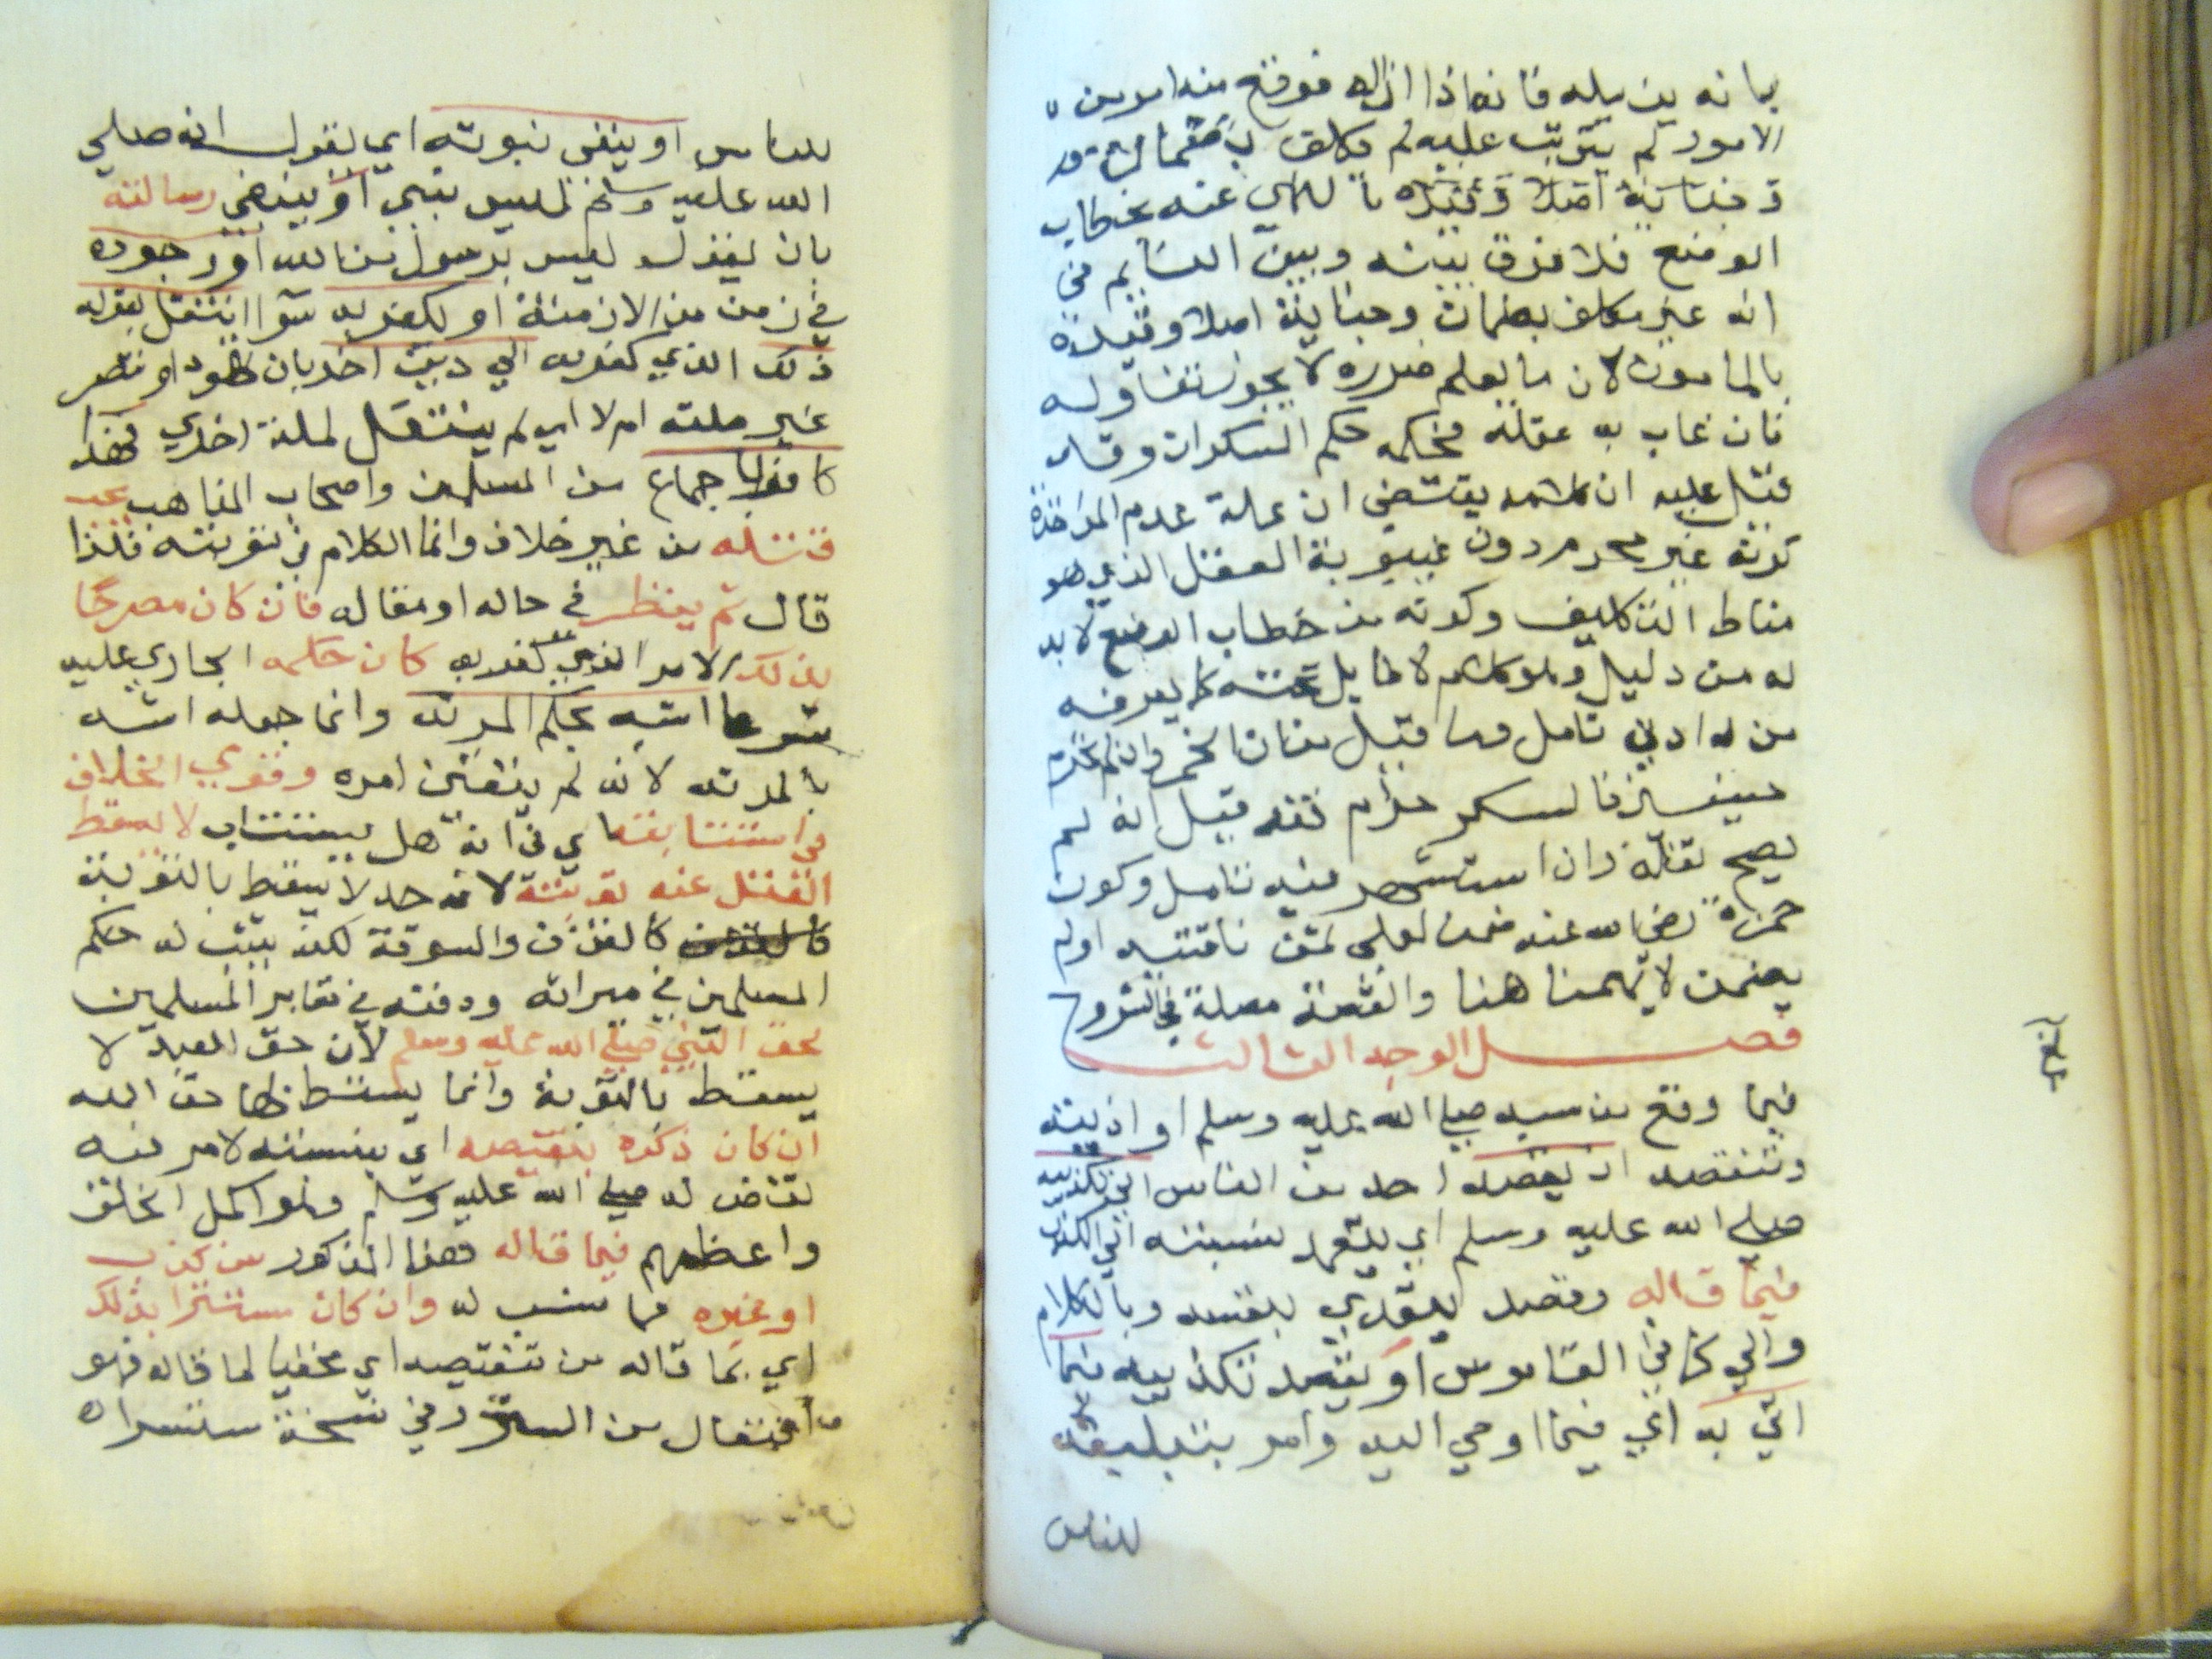 بانه يزيله فانه اذا ازاله فوقع منه امر من
الامور لم يترتب عليه لم يكلف
وجناية اصلا وقيده عنه بخطاب
الوضع فلا فرق بينه وبين النايم في
انه غير مكلف بضمان وجناية اصلا وقيده
بالمامون لان ما يعلم ضرره لا يجوز تناوله
فان غاب به عقله فحكمه حكم السكران وقد
قيل عليه ان كلامه يقتضي ان علة عدم المواخذة
كونه غير محرم دون غيبوبة العقل الذي هو
مناط التكليف وكونه من خطاب الوضع لا بد
له من دليل وهو كلام لا طايل تحته كما يعرفه
من له ادني تامل وما قيل من ان الخمر وان لم تحرم
حينئذ فالسكر حرام فقد قيل انه لم
يصح نقله وان اشتهر فيه تامل وكون
حمزة رضي الله عنه ضمن لعلي ثمن ناقتيه اولم
يضمن لا يهمنا هنا والقصة مفصلة في الشروح
فصل الوجه الثالث
فيما وقع من سبه صلي الله عليه وسلم او اذيته
وتنقصه ان يقصد احد من الناس الي تكذيبه
صلي الله عليه وسلم اي يتعمد نسبته الي الكذب
فيما قاله وقصد يتعدي بنفسه وباللام
والي كما في القاموس او يقصد تكذيبه فيما
اتي به اي فيما اوحي اليه وامر بتبليغه
للناس
بلغ
للناس او ينفي نبوته اي يقول انه صلي
الله عليه وسلم ليس بنبي او ينفي رسالته
بان يقول ليس برسول من الله او وجوده
في زمن من الازمنة او يكفر به سوا انتقل بقوله
ذلك الذي كفر به الي دين اخر بان تهود او تنصر
غير ملته ام لا اي لم ينتقل لملة اخري فهذا
كافر باجماع من المسلمين واصحاب المذاهب يجب
قتله من غير خلاف وانما الكلام في توبته فلذا
قال ثم ينظر في حاله او مقاله فان كان مصرحا
بذلك الامر الذي كفر به كان حكمه الجاري عليه
شرعا اشبه بحكم المرتد وانما جعله اشبه
بالمرتد لانه لم يتعين امره وقوي الخلاف
في استتابته اي في انه هل يستتاب لا يسقط
القتل عنه توبته لانه حد لا يسقط بالتوبة
كالقذف والسرقة لكن يثبت له حكم
المسلمين في ميراثه ودفنه في مقابر المسلمين
لحق النبي صلي الله عليه وسلم لان حق العبد لا
يسقط بالتوبة وانما يسقط بها حق الله
ان كان ذكره بنقيصه اي بنسبته لامر فيه
نقائض له صلي الله عليه وسلم وهو اكمل الخلق
واعظمهم فيما قاله فهذا المذكور من كذب
او غيره مما نسب له وان كان مستترا بذلك
اي بما قاله من تنقيصه اي مخفيا لما قاله فهو
افتعال من الستر وفي نسخة متسترا